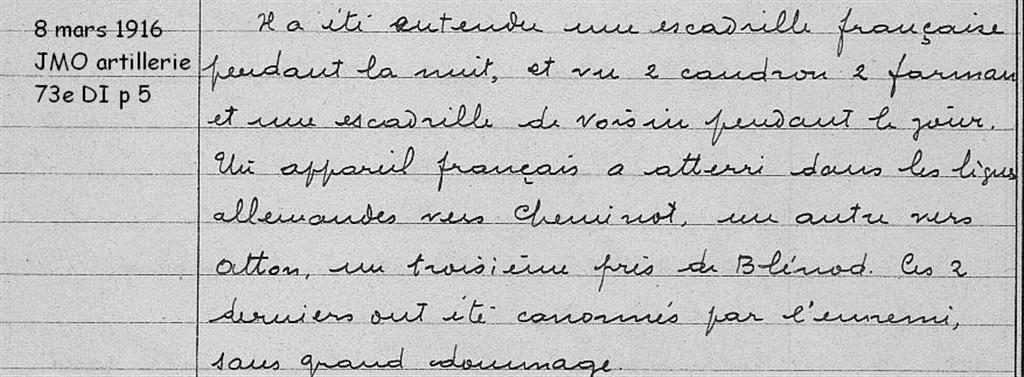 8 mars 1916
JMO artillerie
73e DI p 5
Il a été entendu une escadrille française
pendant la nuit, et vu 2 caudron 2 farman
et une escadrille de voisin pendant le jour.
Un appareil français a atterri dans les lignes
allemandes vers Cheminot, un autre vers
Atton, un troisième près de Blénod. Ces 2
derniers ont été canonnés par l'ennemi,
sans grand dommage.